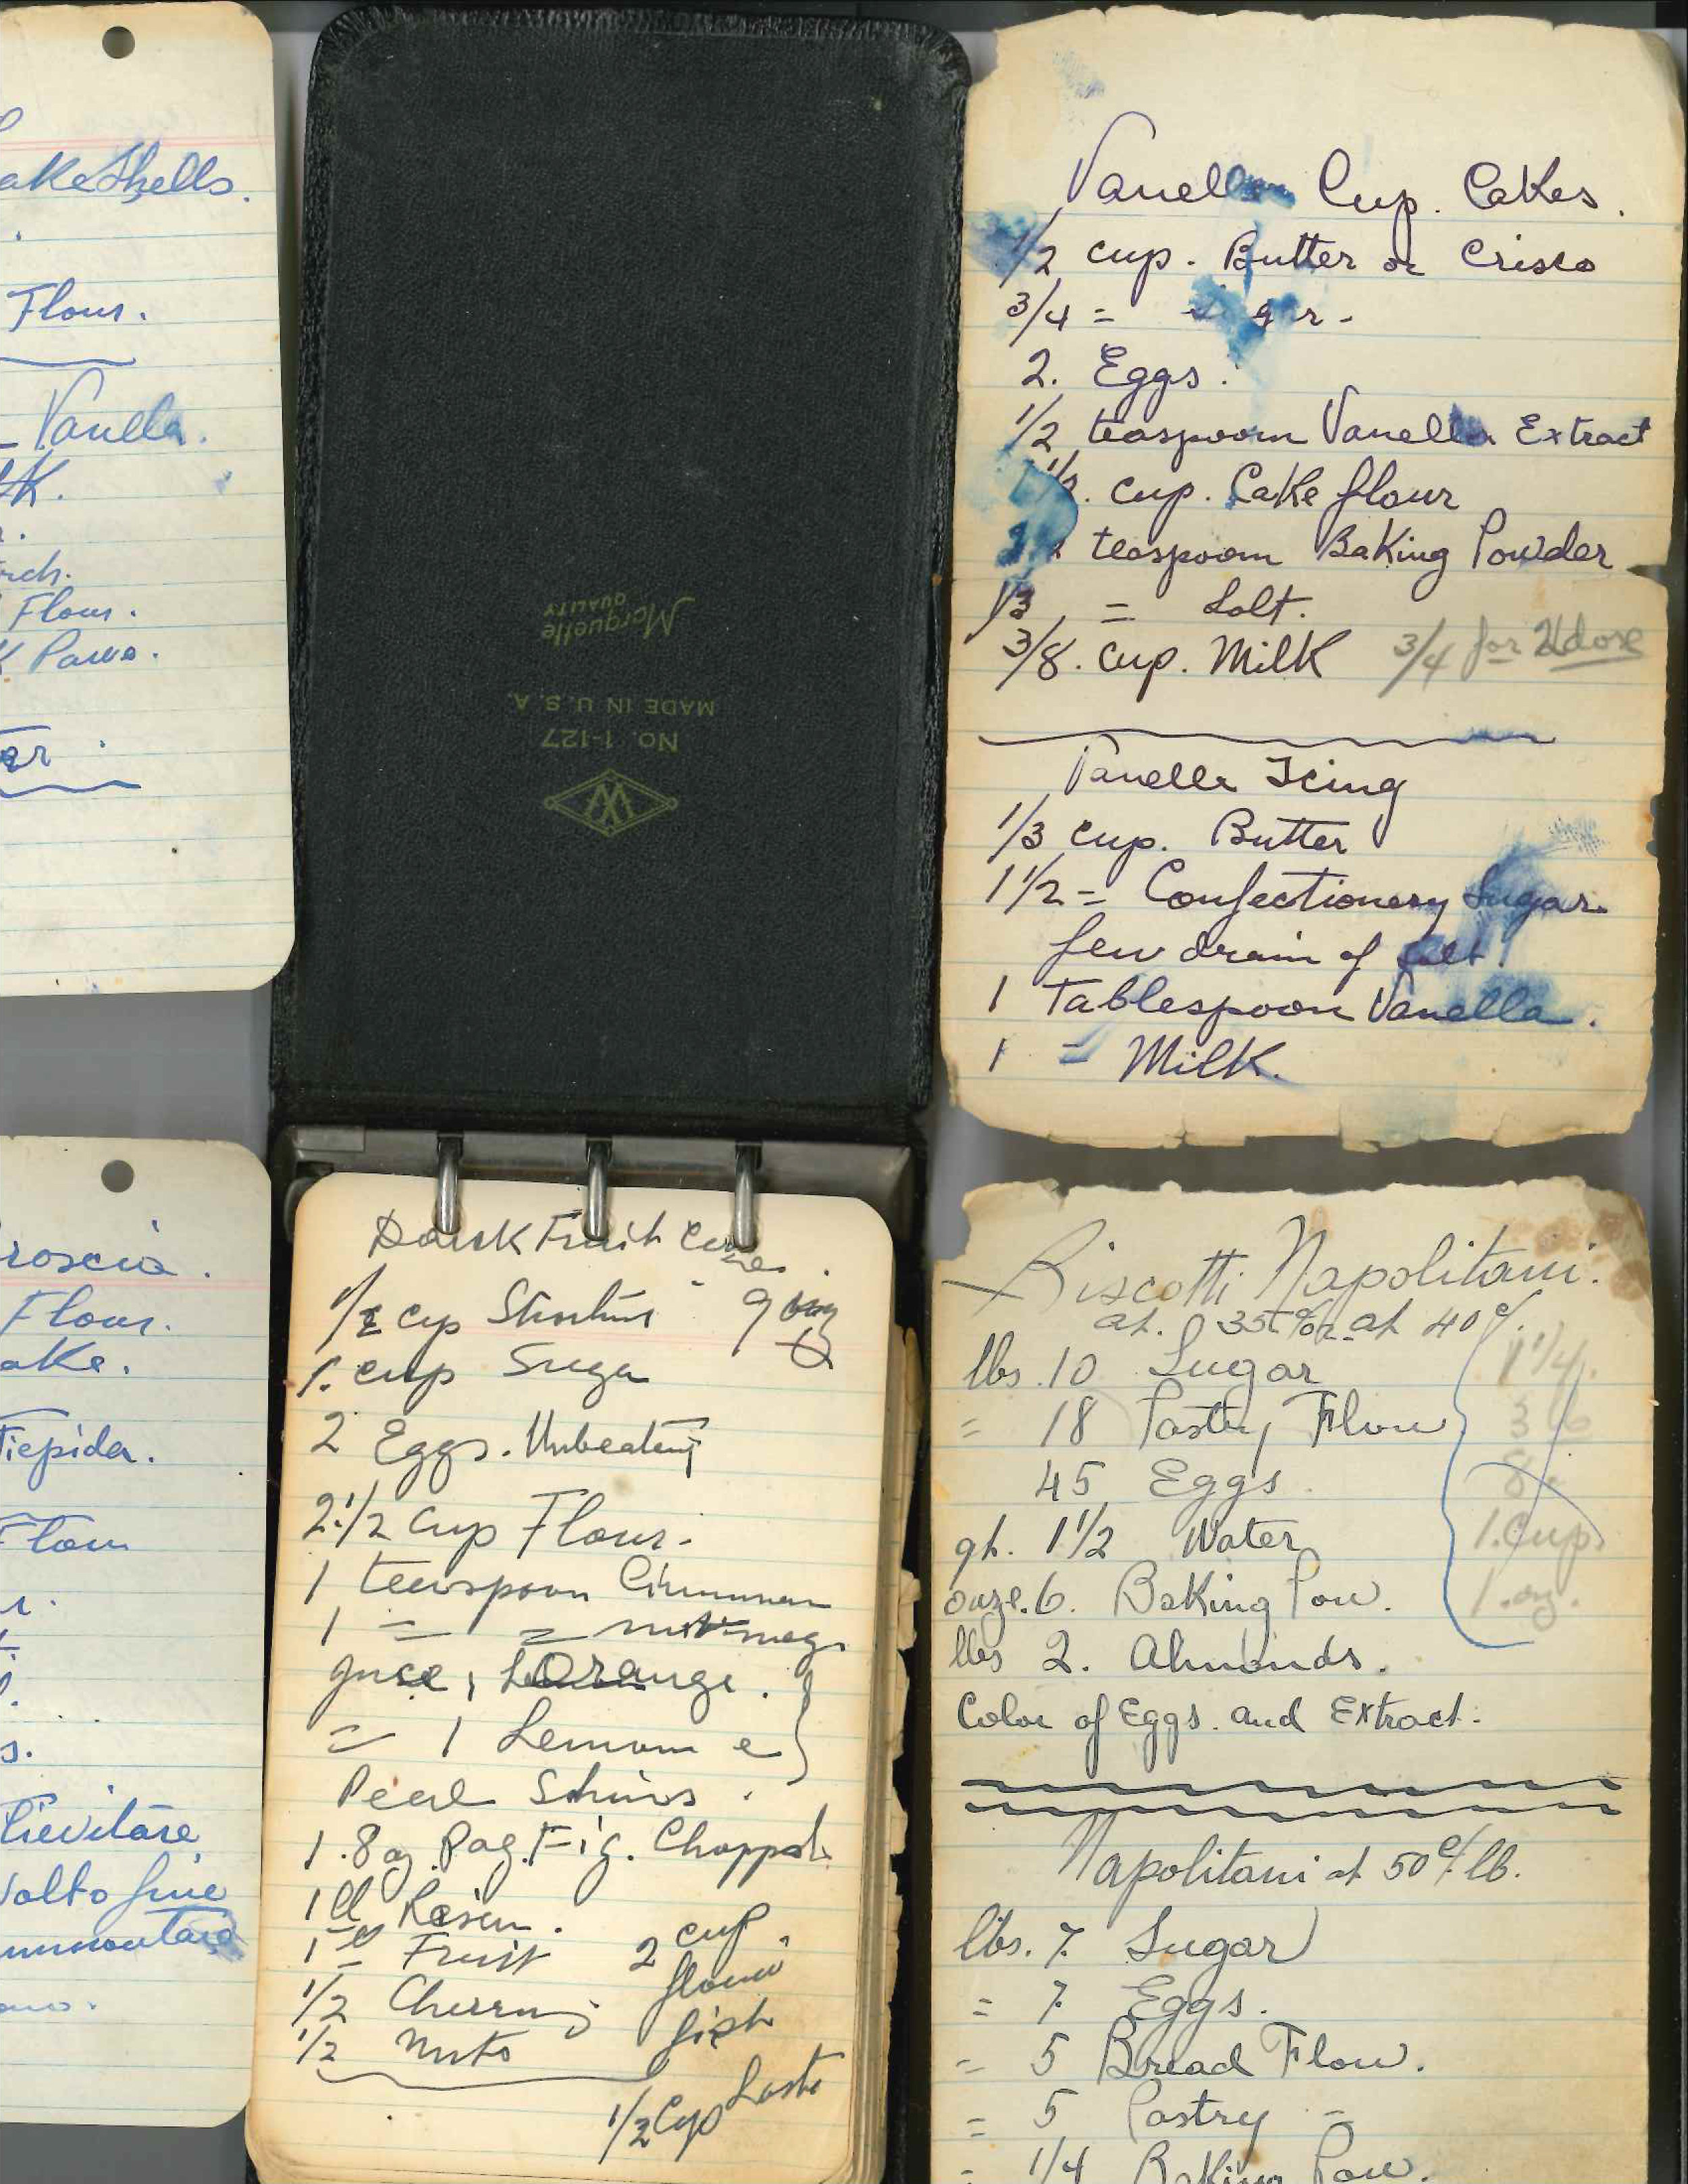 akeShells.
Flour.
Vanella.
Flour.
roscia.
Flour.
ake.
Tiepida.
Flour
lievitare
molto fine
Marquette
QUALITY
MADE IN U.S.A.
No. 1-127
W
Dark Fruit
1/2 cup
1. cup Suga
2 Eggs. Unbeateng
2 1/2 cup Flour.
1 teaspoon Cinnman
1 = = nutmegs
guse 1 Orange.
= 1 Lemom e
Peel Skins.
1. 8 oz Pag. Fig. Choppd
1 ll Rasin.
1 = Fruit
1/2 Cherry
1/2 Nuts
2 cup
flour
fist
1/2 Cup Laste
Vanella Cup. Cakes.
1/2 cup. Butter or Crisco
3/4 =
2. Eggs.
1/2 teaspoom Vanella Extract
cup. Cake flour
teaspoom Baking Powder
1/3 = Salt.
3/8. cup. Milk 3/4 for 2 dose
Vanella Icing
1/3 cup. Butter
1 1/2 = Confectionery Sugar.
few drain of salt.
1 Tablespoon Vanella.
1 = Milk.
Biscotti Napolitani.
at. 35% or at 40¢.
lbs. 10 Sugar 1 1/4.
= 18 Pastry Flour 3
45 Eggs 8.
qt. 1 1/2 Water 1. Cup.
ouze. 6. Baking Pow. 1. oz.
lbs 2. Almonds.
Color of Eggs. and Extract.
Napolitani at 50¢ lb.
lbs. 7. Sugar
= 7. Eggs.
= 5 Bread Flour.
= 5 Pastry =
= 1/4 Baking Pow.